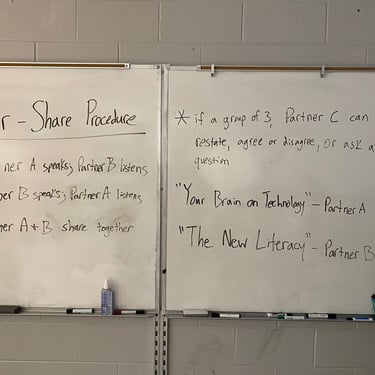 r - Share Procedure
ner A speaks; Partner B listens
er B speaks; Partner A listens
ner A + B share together
* if a group of 3, Partner C can
restate, agree or disagree, or ask a
question
"Your Brain on Technology" - Partner A
"The New Literacy" - Partner B